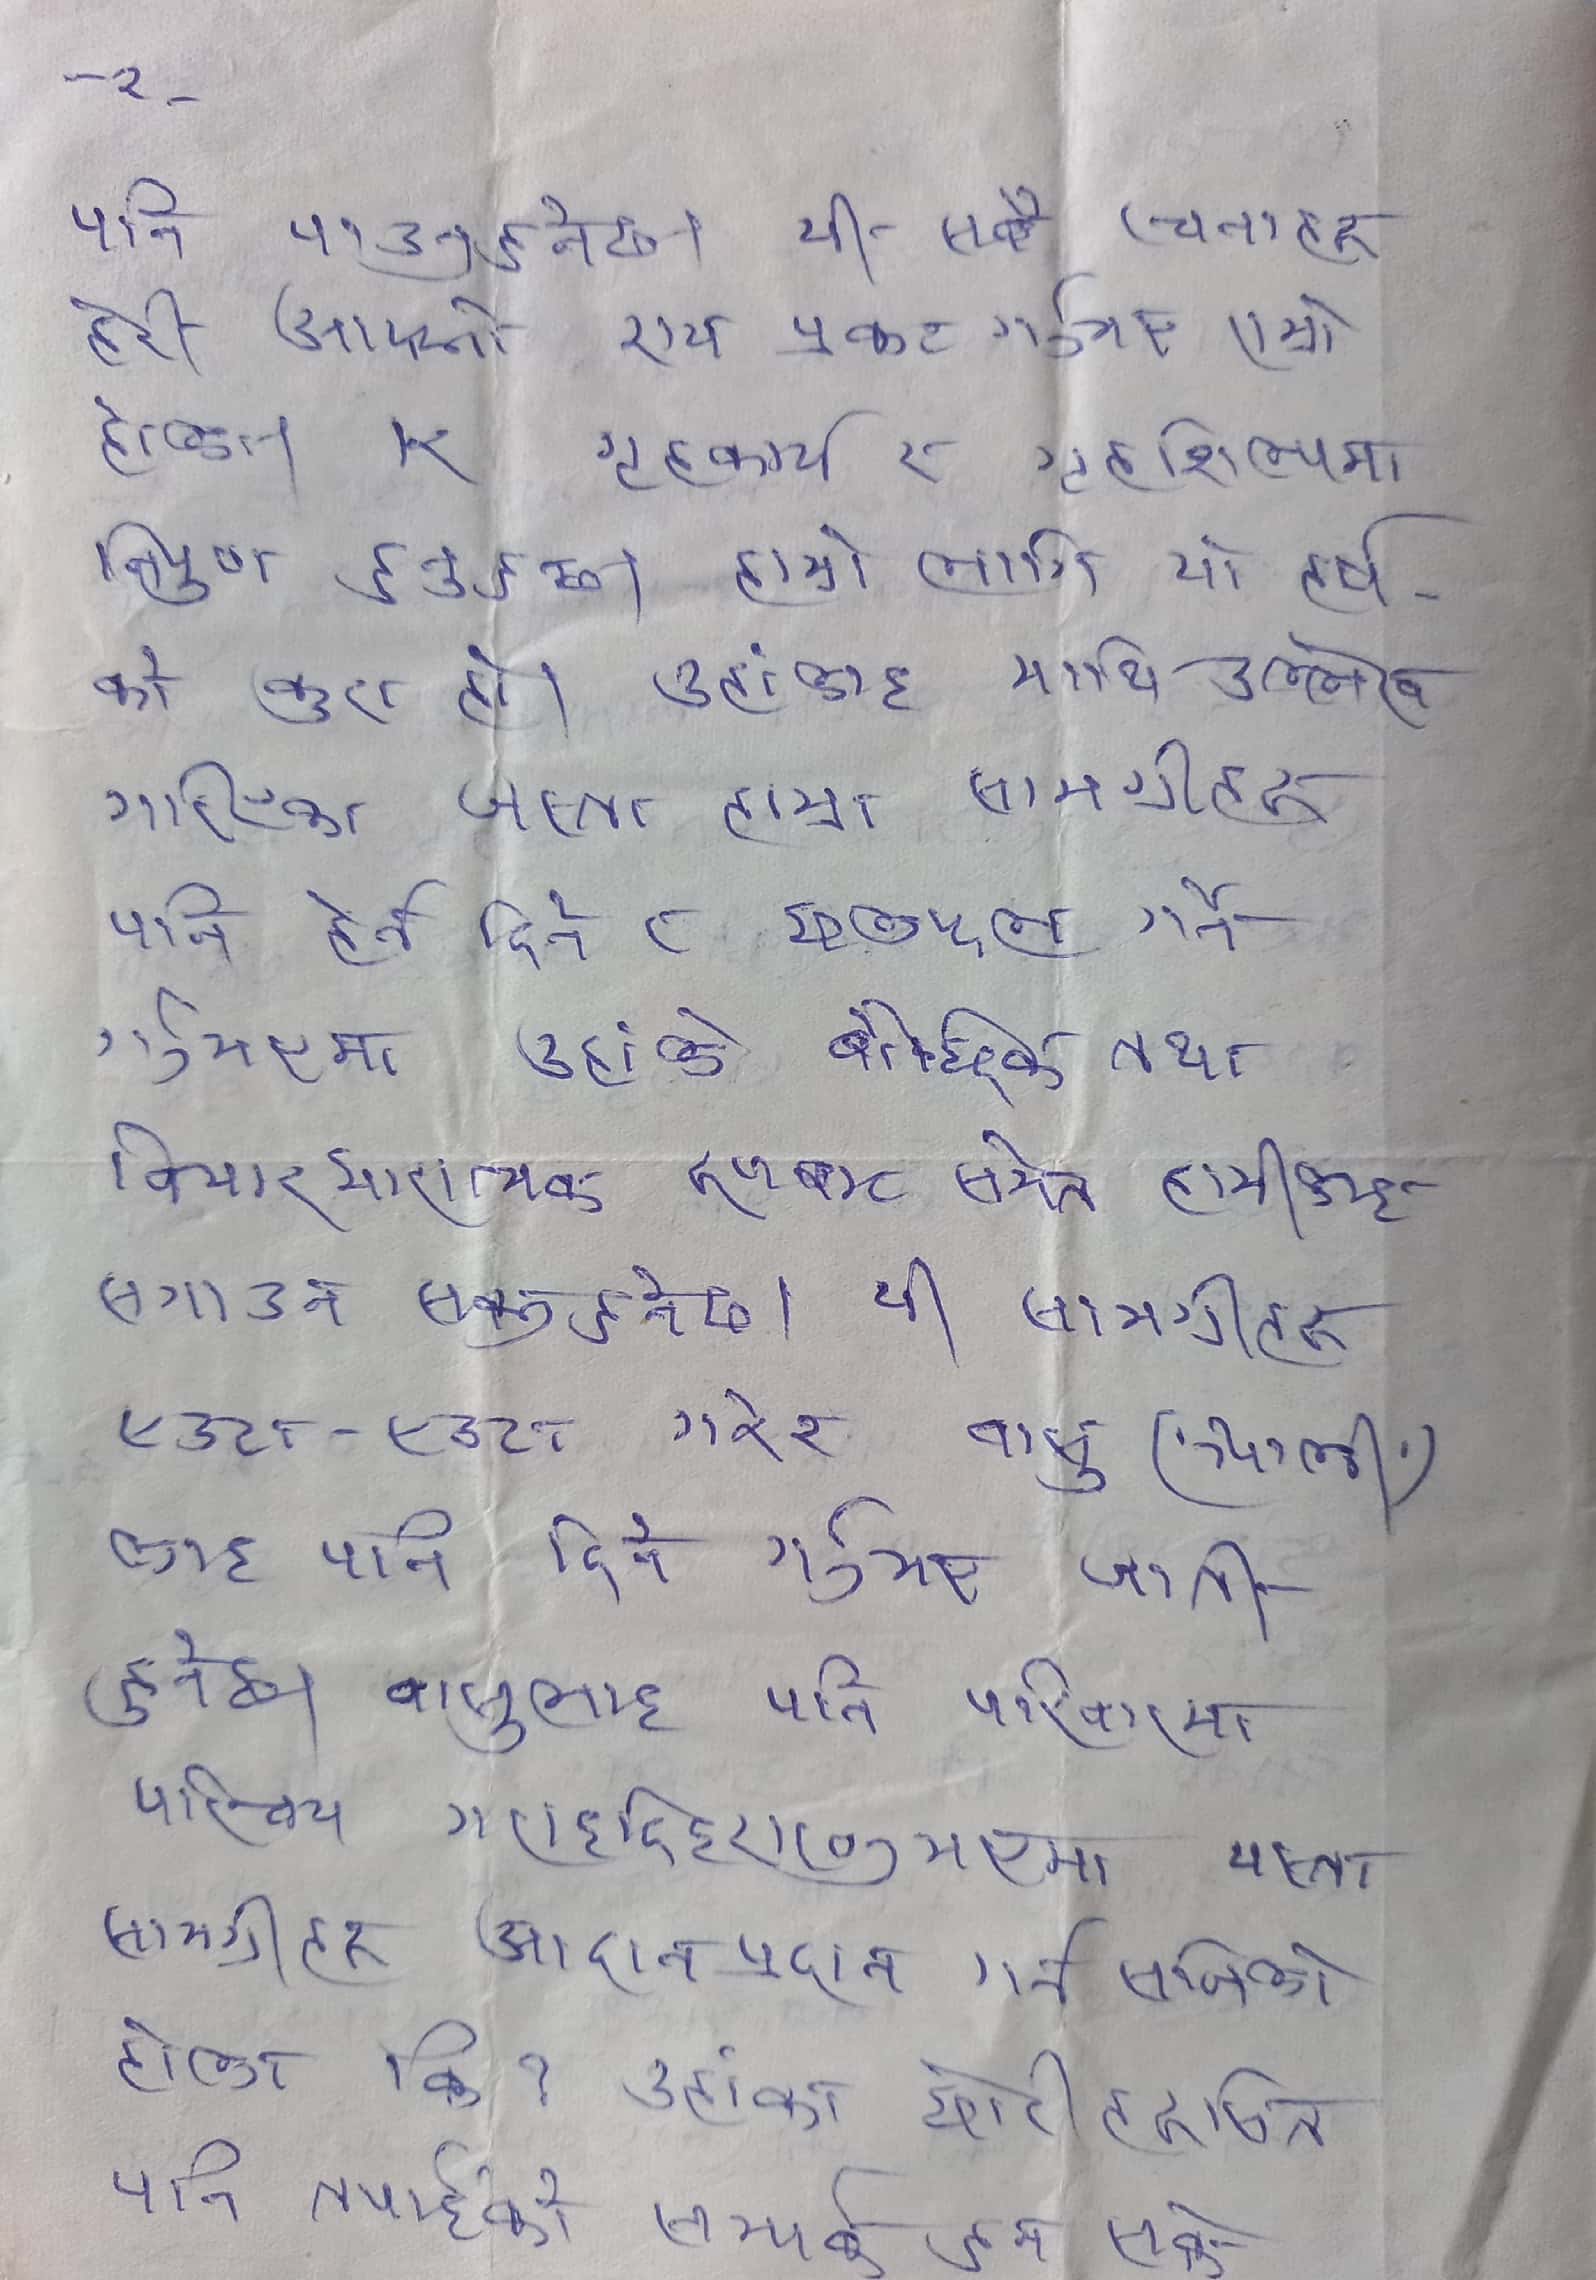 -२-
पनि पाउनुहुनेछ। यी सबै रचनाहरू
हेरी आफ्नो राय प्रकट गर्नुभए राम्रो
होला। R गृहकार्य र गृहशिल्पमा
निपुण हुनुहुन्छ। हाम्रो लागि यो हर्ष-
को कुरा हो। उहांलाइ माथि उल्लेख
गरिएका जस्ता हाम्रा सामग्रीहरू
पनि हेर्न दिने र छलफल गर्ने
गर्नुभएमा उहांले बौद्धिक तथा
विचारधारात्मक रूपबाट समेत हामीलाइ
सगाउन सक्नुहुनेछ। यी सामग्रीहरू
एउटा-एउटा गरेर बासु
लाइ पनि दिने गर्नुभए जाती
हुनेछ। बासुलाइ पनि परिवारमा
परिचय गराइदिइराख्नुभएमा यस्ता
सामग्रीहरू आदान प्रदान गर्न सजिलो
होला कि ? उहांका छोरीहरूसित
पनि तपाईंको सम्पर्क हुन सके